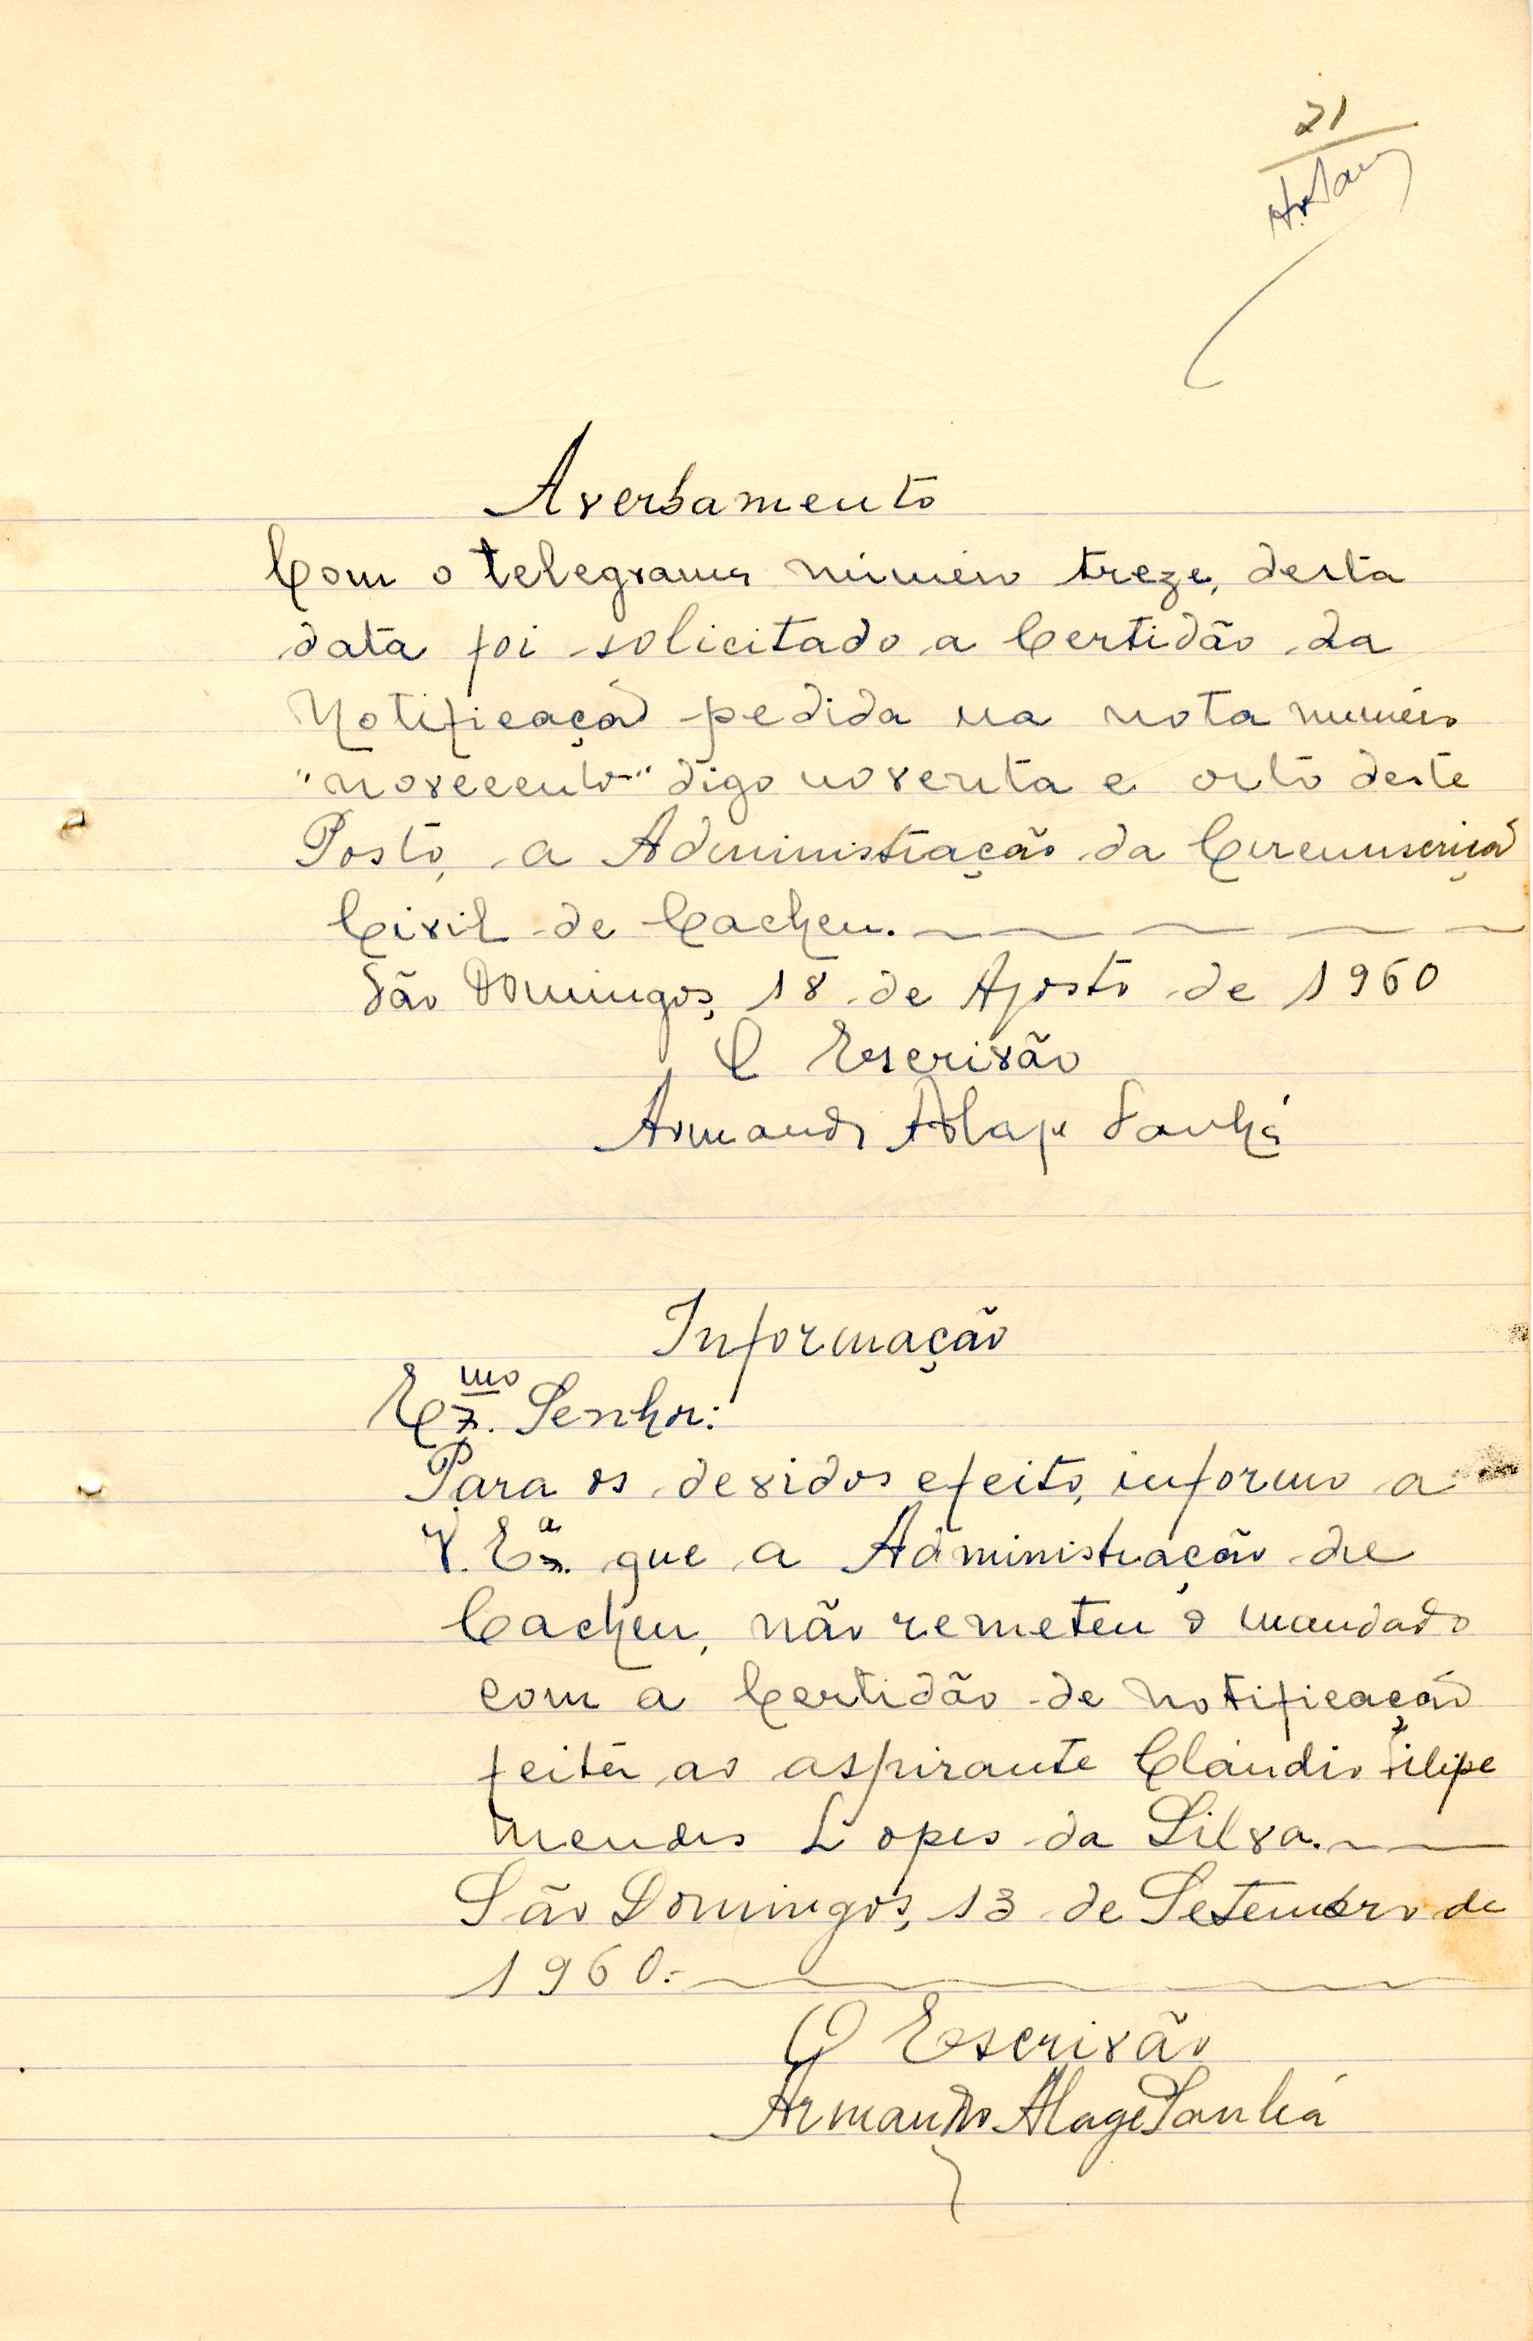 21
Averbamento
Com o telegrama número treze, desta
data foi solicitado a Certidão da
Notificação pedida na nota número
"novecento" digo noventa e oito deste
Posto, a Administração da Circunscrição
Civil de Cacheu.
São Domingos, 18 de Agosto de 1960
O Escrivão
Armando Alage Sanhá
Informação
Exmo. Senhor:
Para os devidos efeito, informo a
V. Exa. que a Administração de
Cacheu, não remeteu o mandado
com a Certidão de notificação
feita ao aspirante Cláudio Filipe
Mendes Lopes da Silva.
São Domingos, 13 de Setembro de
1960.-
O Escrivão
Armando Alage Sanhá